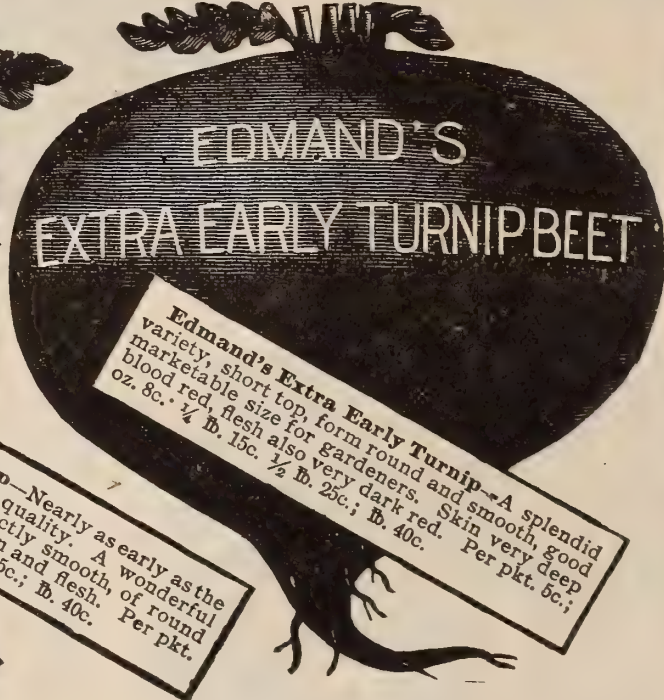 EDMAND'S
EXTRA EARLY TURNIP BEET
Edmand's Extra Early Turnip—A splendid
variety, short top, form round and smooth, good
marketable size for gardeners. Skin very deep
blood red, flesh also very dark red. Per pkt. 5c.;
oz. 8c.; ¼ lb. 15c. ½ lb. 25c.; lb. 40c.
—Nearly as early as the
quality. A wonderful
smooth, of round
and flesh. Per pkt.
5c.; lb. 40c.